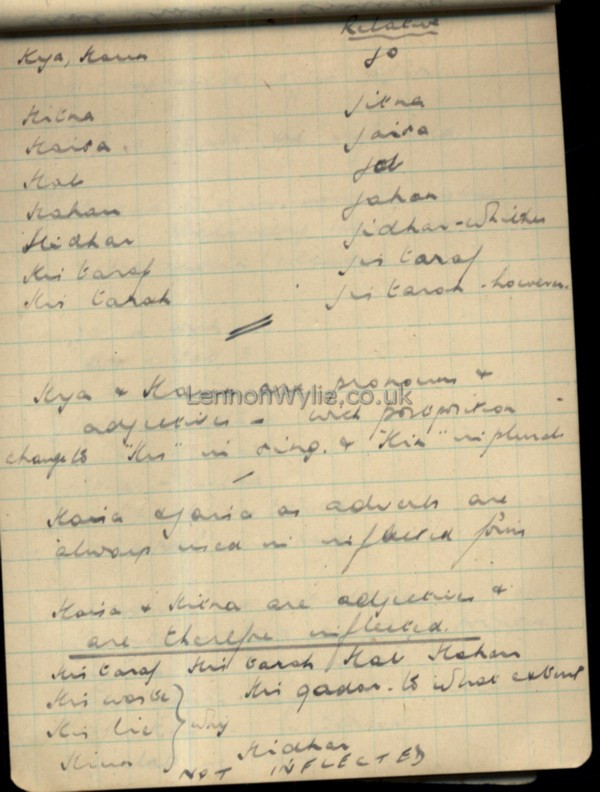 Relative
Kya, Kaun jo
Kitna jitna
Kaisa jaisa
Kab jab
Kahan jahan
Kidhar jidhar - whither
Kis taraf jis taraf
Kis tarah jis tarah - however.
Kya & Kaun are pronouns &
adjectives - with postposition
change to "Kis" in sing. & "Kin" in plural
LennonWylie.co.uk
Kaisa & jaisa as adverbs are
always used in inflected form
Kaisa & Kitna are adjectives &
are therefore inflected.
Kis taraf Kis tarah Kab Kahan
Kis waste Kis qadar - to what extent
Kis lie why
Kidhar
NOT INFLECTED